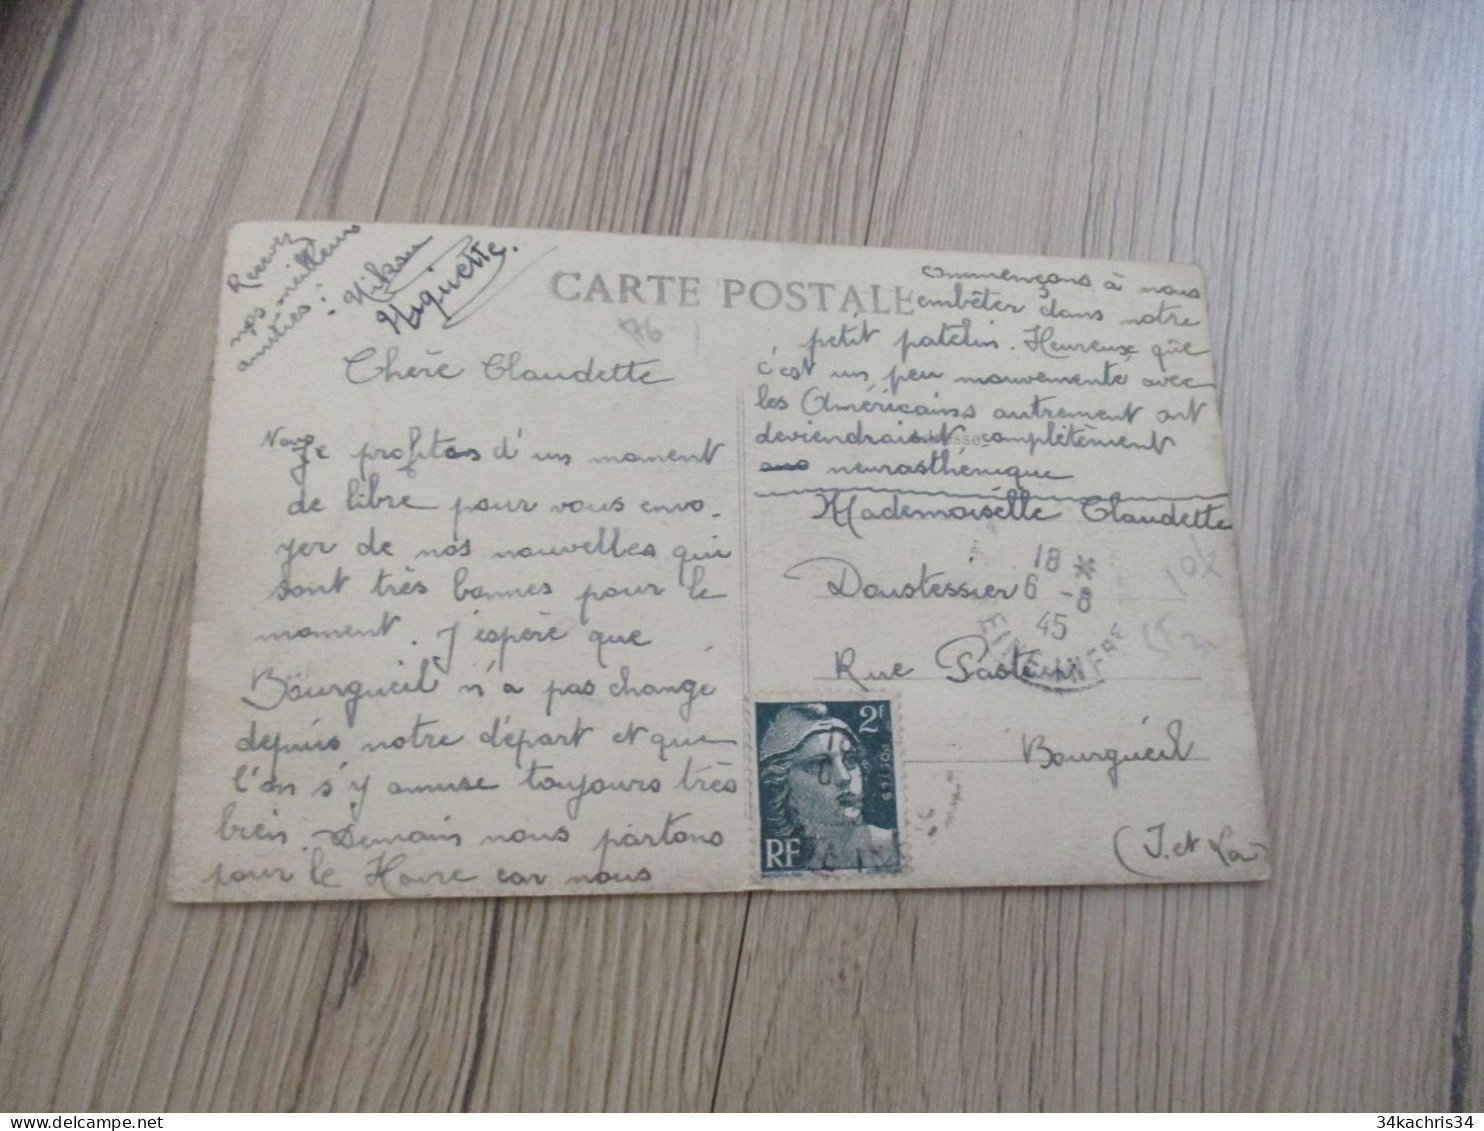 CARTE POSTALE
Chère Claudette
Nous profitons d'un moment
de libre pour vous envo-
yer de nos nouvelles qui
sont très bonnes pour le
moment. J'espère que
Bourgueil n'a pas changé
depuis notre départ et que
l'on s'y amuse toujours très
bien. Demain nous partons
pour le Havre car nous
commençons à nous
embêter dans notre
petit patelin. Heureux que
c'est un peu mouvementé avec
les Américains autrement ont
deviendrait complètement
neurasthénique
Recevez
nos meilleurs
amitiés :
Huguette.
Mademoiselle Claudette
Doustessier
Rue Pasteur
Bourgueil
(I. et La)
18 *
6 -8
45
2F
POSTES
RF
delcampe.net
34kachris34